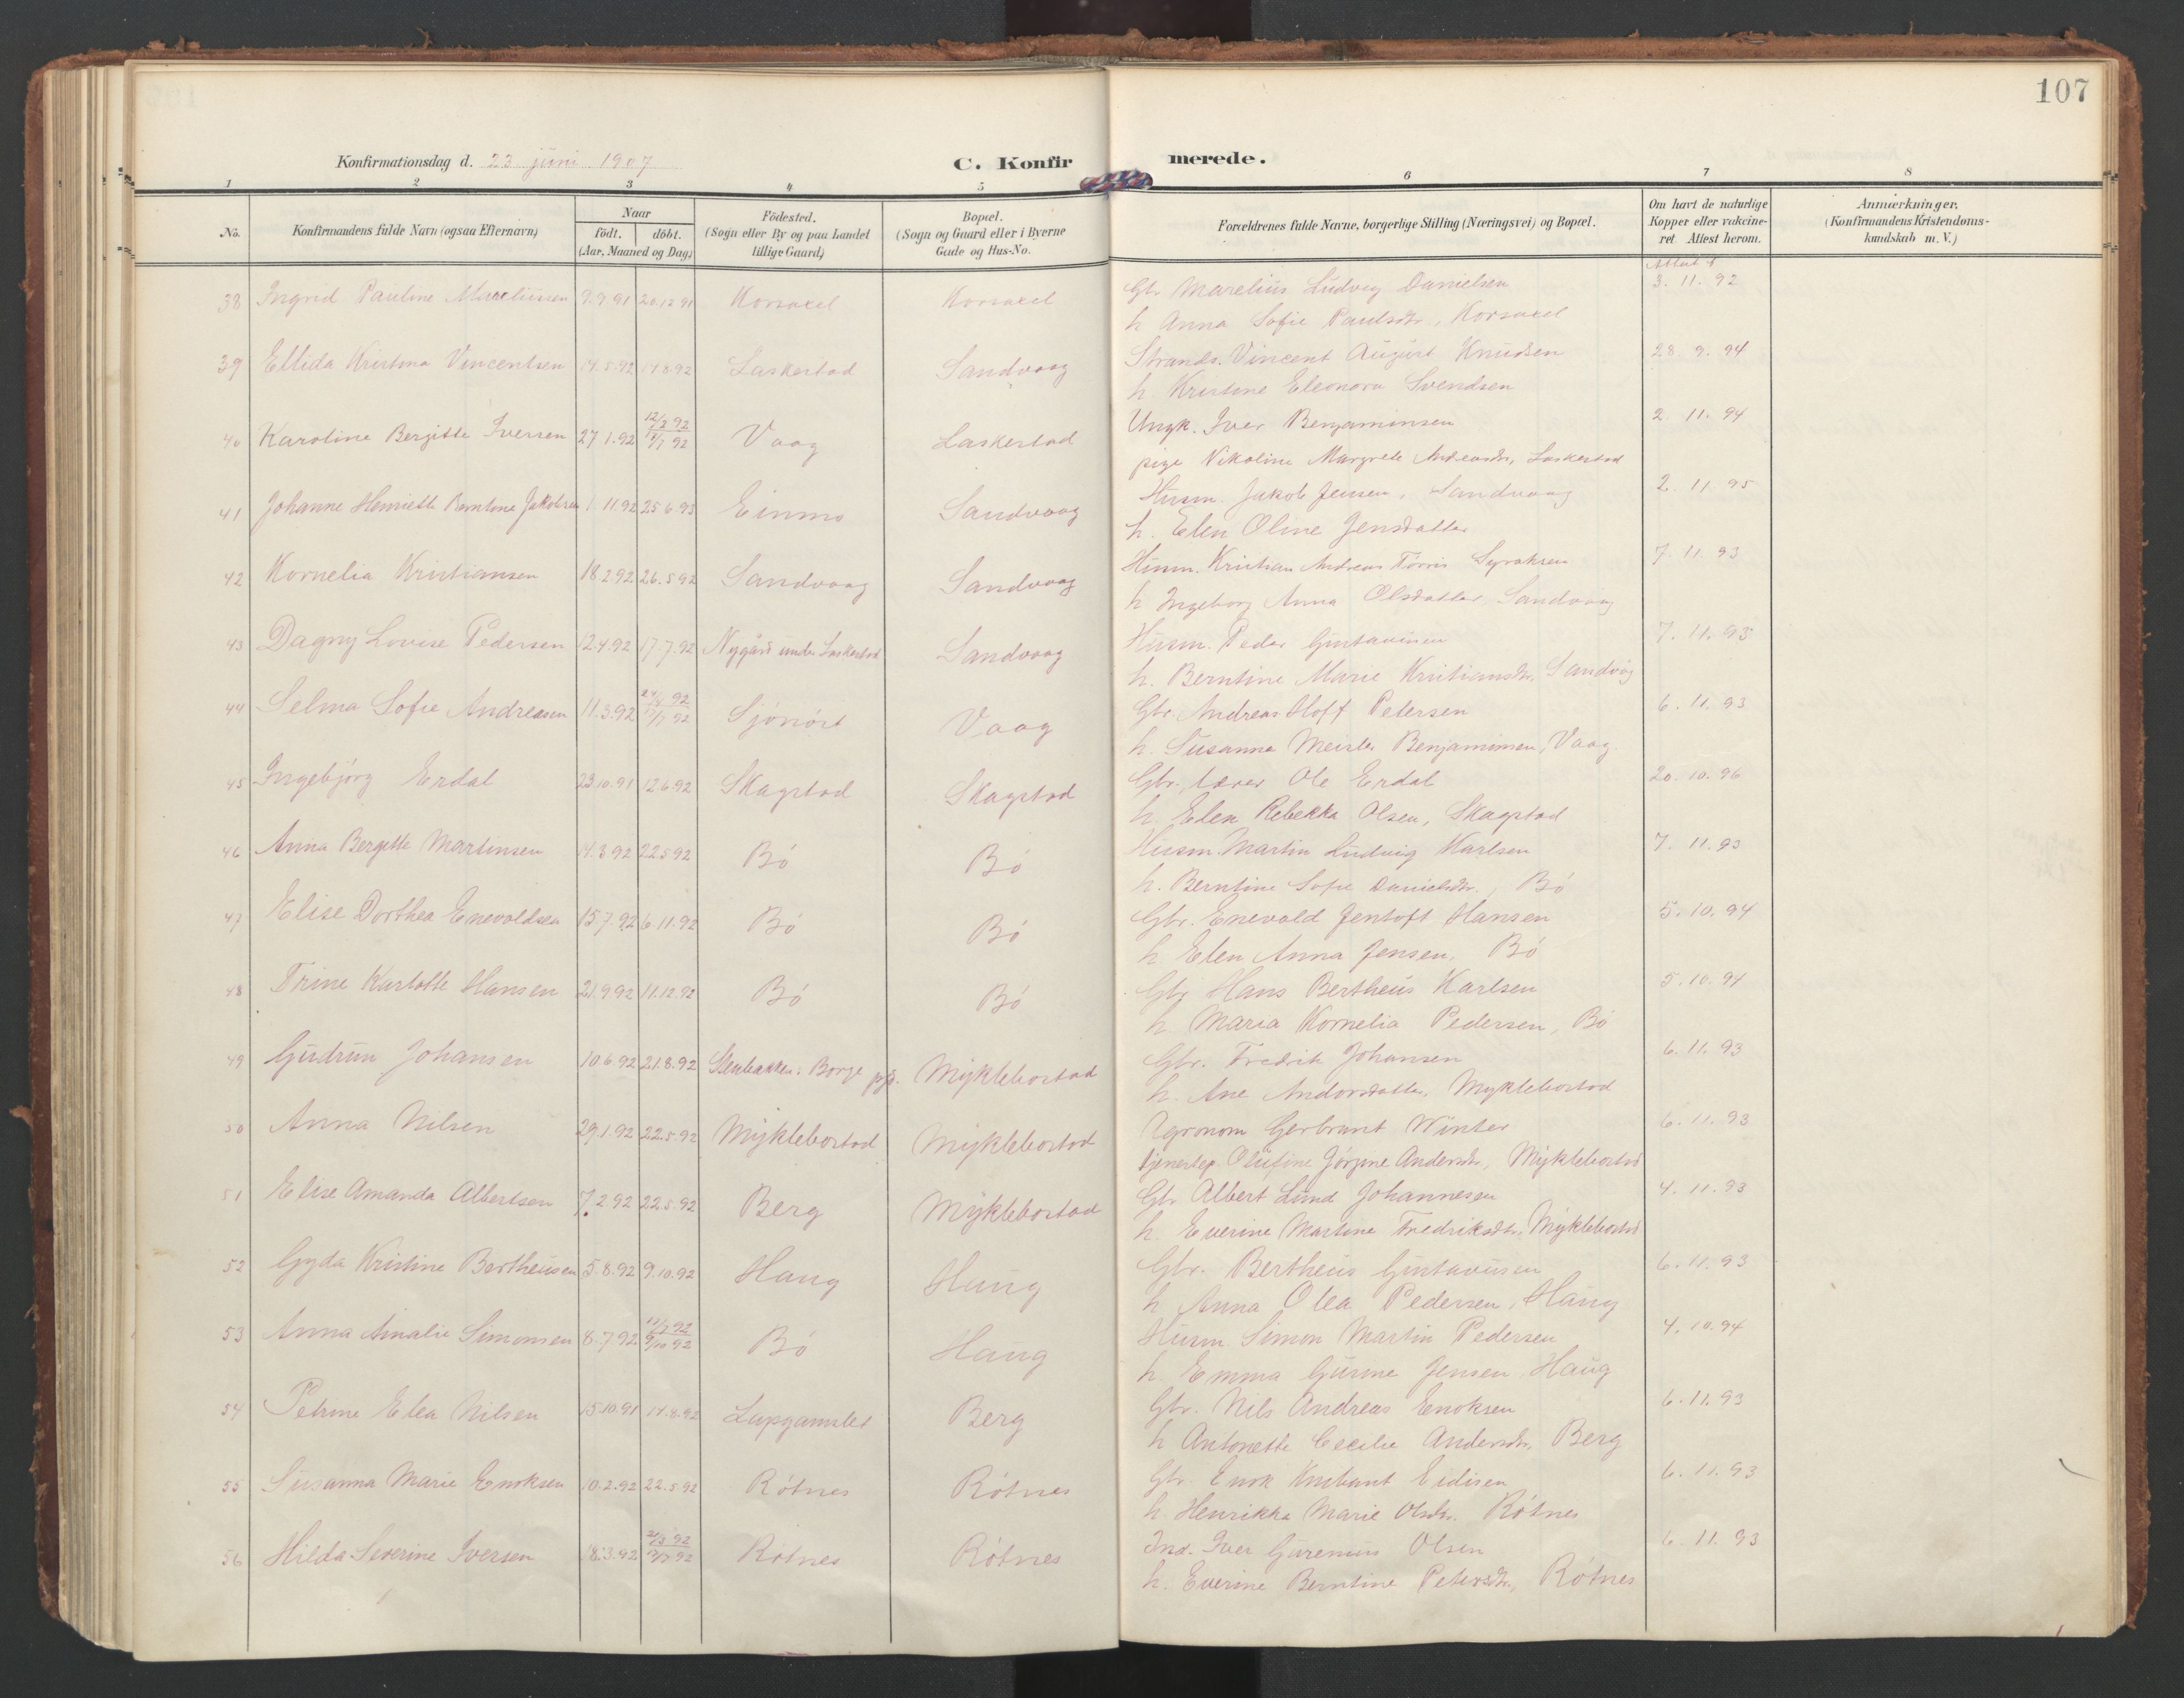 107
Konfirmationsdag d. 23 juni 1907
C. Konfirmerede.
1 2 3 4 5 6 7 8
No.
Konfirmandens fulde Navn (ogsaa Efternavn)
Naar
födt. döbt.
(Aar, Maaned og Dag)
Födested.
(Sogn eller By og paa Landet
tillige Gaard)
Bopæl.
(Sogn og Gaard eller i Byerne
Gade og Hus-No.
Forældrenes fulde Navne, borgerlige Stilling (Næringsvei) og Bopæl.
Om havt de naturlige
Kopper eller vakcine-
ret. Attest herom.
Anmærkninger,
(Konfirmandens Kristendoms-
kundskab m. V.)
38 Ingrid Pauline Mareliussen 9.9.91 20.12.91 Korsaxel Korsaxel Gbr. Marelius Ludvig Danielsen 3.11.92
h Anna Sofie Paulsdtr., Korsaxel
39 Ellida Kristina Vincentsen 14.5.92 14.8.92 Laskestad Sandvaag Strands. Vincent August Knudsen 28.9.94
h. Kristine Eleonora Svendsen
40 Karoline Bergitte Iversen 27.1.92 12/2 92 17/7 92 Vaag Laskestad Ungk. Iver Benjaminsen 2.11.94
pige Nikoline Margrete Andreasdtr., Laskestad
41 Johanne Henriette Berntine Jakobsen 1.11.92 25.6.93 Einmo Sandvaag Husm. Jakob Jensen, Sandvaag 2.11.95
h. Elen Oline Jensdatter
42 Kornelia Kristiansen 18.2.92 26.5.92 Sandvaag Sandvaag Husm. Kristian Andreas Tørris Syraksen 7.11.93
h Ingeborg Anna Olsdatter Sandvaag
43 Dagny Lovise Pedersen 12.4.92 17.7.92 Nygård under Laskestad Sandvaag Husm. Peder Gustavusen 7.11.93
h. Berntine Marie Kristiansdtr. Sandvåg
44 Selma Sofie Andreasen 11.3.92 Sjönöst Vaag Gbr. Andreas Hoff Petersen 6.11.93
h. Susanna Meisler Benjaminsen, Vaag
45 Ingebjörg Erdal 23.10.91 12.6.92 Skagstad Skagstad Gbr. lærer Ole Erdal 20.10.96
h. Elen Rebekka Olsen, Skagstad
46 Anna Bergitte Martinsen 14.3.92 22.5.92 Bö Bö Husm. Martin Ludvig Karlsen 7.11.93
h. Berntine Sofie Danielsdtr., Bö
47 Elise Dorthea Enevoldsen 15.7.92 6.11.92 Bö Bö Gbr. Enevold Jentoft Hansen 5.10.94
h Elen Anna Jensen, Bö
48 Trine Karlotte Hansen 21.9.92 11.12.92 Bö Bö Gbr Hans Bertheus Karlsen 5.10.94
h Maria Kornelia Pedersen, Bö
49 Gudrun Johansen 10.6.92 21.8.92 Stenbakken, Borge pgj. Myklebostad Gbr. Fredrik Johansen 6.11.93
h. Ane Andorsdatter, Myklebostad
50 Anna Nilsen 29.1.92 22.5.92 Myklebostad Myklebostad Agronom Gerbrant Winter 6.11.93
tjenestep. Olufine Jörgine Andersdtr., Myklebostad
51 Elise Amanda Albertsen 7.2.92 22.5.92 Berg Myklebostad Gbr Albert Lund Johannesen 4.11.93
h. Everine Martine Fredriksdtr. Myklebostad
52 Gyda Kristine Bertheusen 5.8.92 9.10.92 Haug Haug Gbr. Bertheus Gustavusen 6.11.93
h Anna Olea Pedersen, Haug
53 Anna Amalie Simonsen 8.7.92 9/10 92 Bö Haug Husm. Simon Martin Pedersen 4.10.94
h. Emma Gurine Jensen Haug
54 Petrine Elea Nilsen 15.10.91 14.8.92 Berg Gbr. Nils Andreas Enoksen 6.11.93
h Antonette Cecilie Andersdtr., Berg
55 Susanna Marie Enoksen 10.2.92 22.5.92 Rötnes Rötnes Gbr. Enok Eidisen 6.11.93
h. Henrikka Marie Olsdtr. Rötnes
56 Hilda Severine Iversen 18.3.92 Rötnes Rötnes Ind. Iver Olsen 6.11.93
h. Everine Berntine Petersdtr, Rötnes